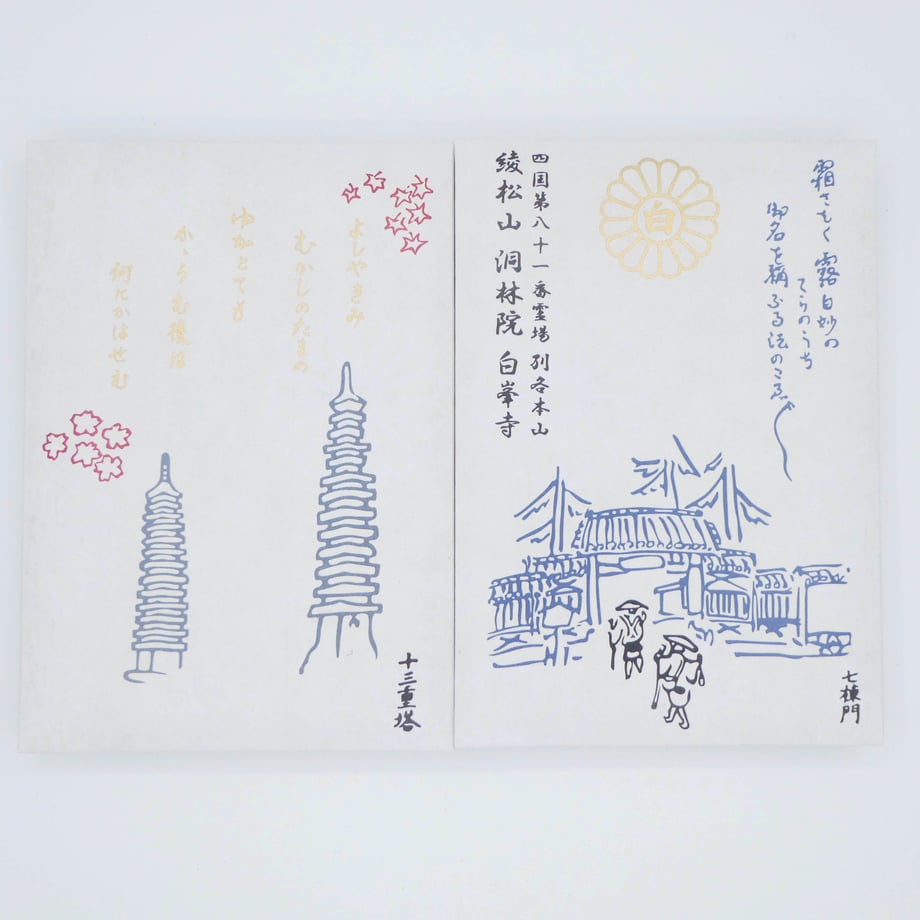 霜さむく露白妙の
てらのうち
御名を稱ふる法のこゑ〴〵
白
四国第八十一番霊場 別各本山
綾松山 洞林院 白峯寺
七棟門
よしやきみ
むかしのたまの
ゆかとても
かゝらむ後は
何にかはせむ
十三重塔